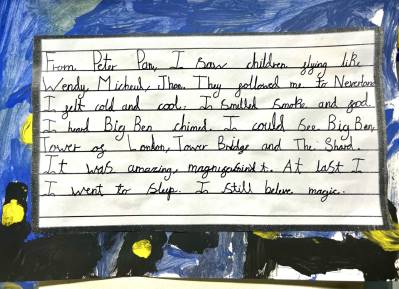 From Peter Pan, I saw children flying like
Wendy, Micheul, Jhon. They gollowed me to Neverland
I gelt cold and cool. I smelled smoke and good.
I heard Big Ben chimed. I could see Big Ben,
Tower og London, Tower Bridge and The Shard.
It was amazing, At last I
I went to sleep. I still beleve magic.